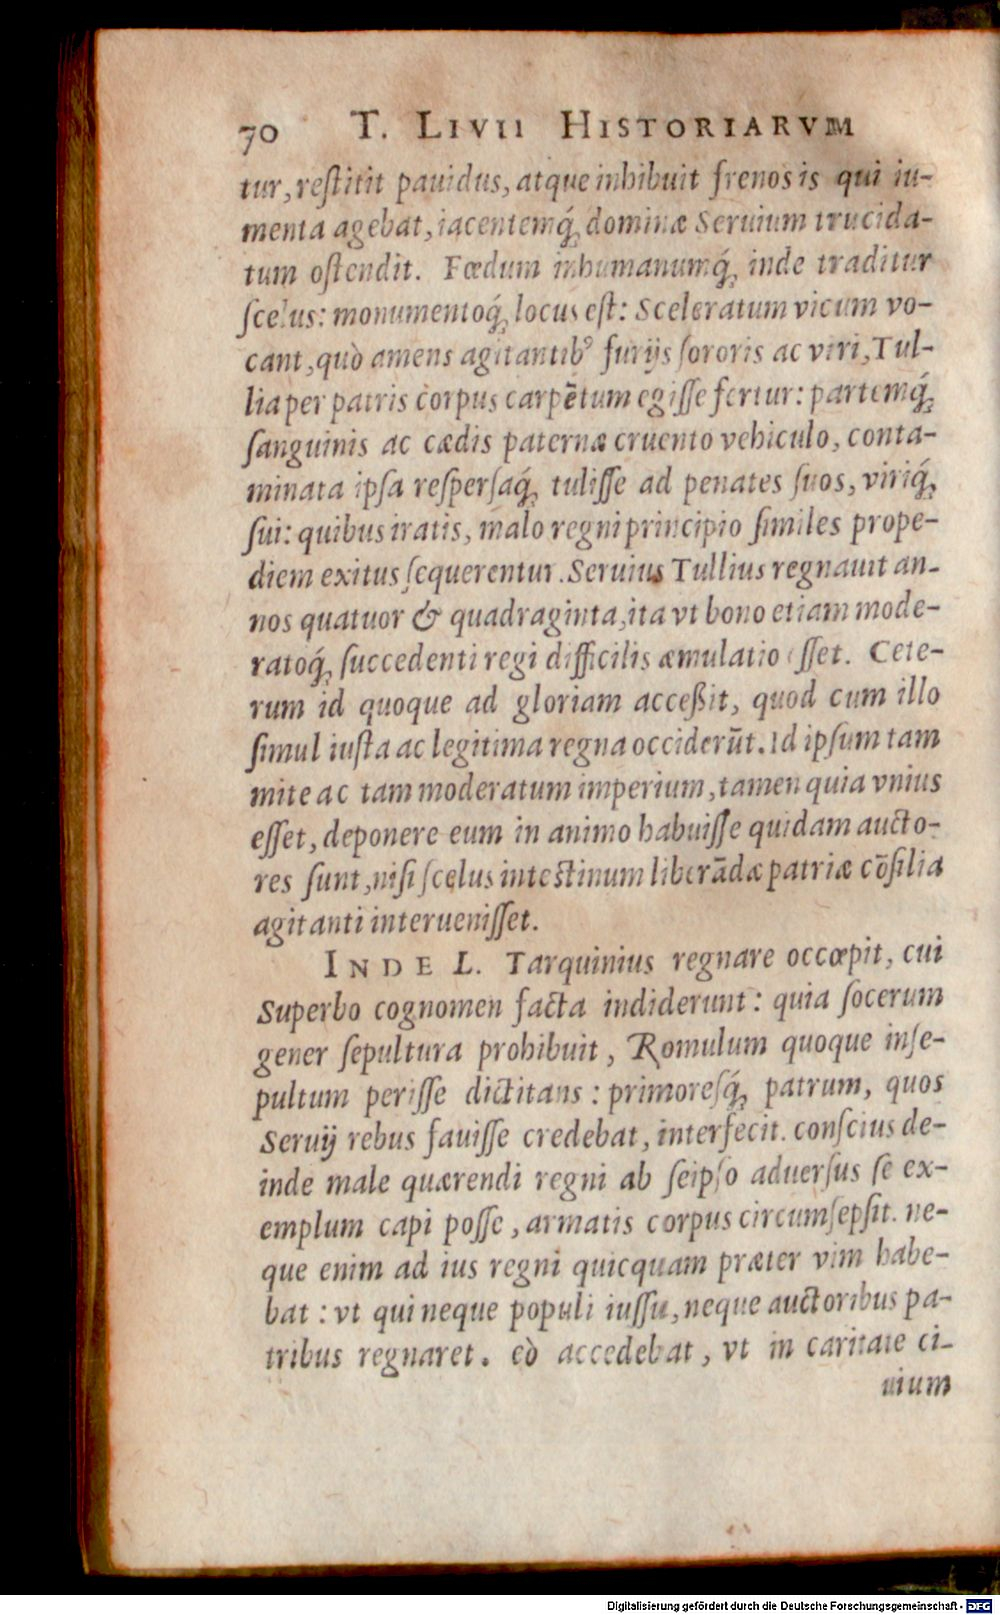 70 T. LIVII HISTORIARVM
tur, reſtitit pauidus, atque inhibuit frenos is qui iu-
menta agebat, iacentemq́; dominæ Seruium trucida-
tum oſtendit. Fœdum inhumanumq́; inde traditur
ſcelus: monumentoq́; locus eſt: Sceleratum vicum vo-
cant, quò amens agitantibꝰ furijs ſororis ac viri, Tul-
lia per patris corpus carpẽtum egiſſe fertur: partemq́;
ſanguinis ac cædis paternæ cruento vehiculo, conta-
minata ipſa reſperſaq́; tuliſſe ad penates ſuos, viriq́;
ſui: quibus iratis, malo regni principio ſimiles prope-
diem exitus ſequerentur. Seruius Tullius regnauit an-
nos quatuor & quadraginta, ita vt bono etiam mode-
ratoq́; ſuccedenti regi difficilis æmulatio eſſet. Cete-
rum id quoque ad gloriam acceßit, quod cum illo
ſimul iuſta ac legitima regna occiderũt. Id ipſum tam
mite ac tam moderatum imperium, tamen quia vnius
eſſet, deponere eum in animo habuiſſe quidam aucto-
res ſunt, niſi ſcelus inteſtinum liberãdæ patriæ cõſilia
agitanti interueniſſet.
INDE L. Tarquinius regnare occœpit, cui
Superbo cognomen facta indiderunt: quia ſocerum
gener ſepultura prohibuit, Romulum quoque inſe-
pultum periſſe dictitans: primoreſq́; patrum, quos
Seruij rebus fauiſſe credebat, interfecit. conſcius de-
inde male quærendi regni ab ſeipſo aduerſus ſe ex-
emplum capi poſſe, armatis corpus circumſepſit. ne-
que enim ad ius regni quicquam præter vim habe-
bat: vt qui neque populi iuſſu, neque auctoribus pa-
tribus regnaret. eò accedebat, vt in caritate ci-
uium
Digitalisierung gefördert durch die Deutsche Forschungsgemeinschaft - DFG